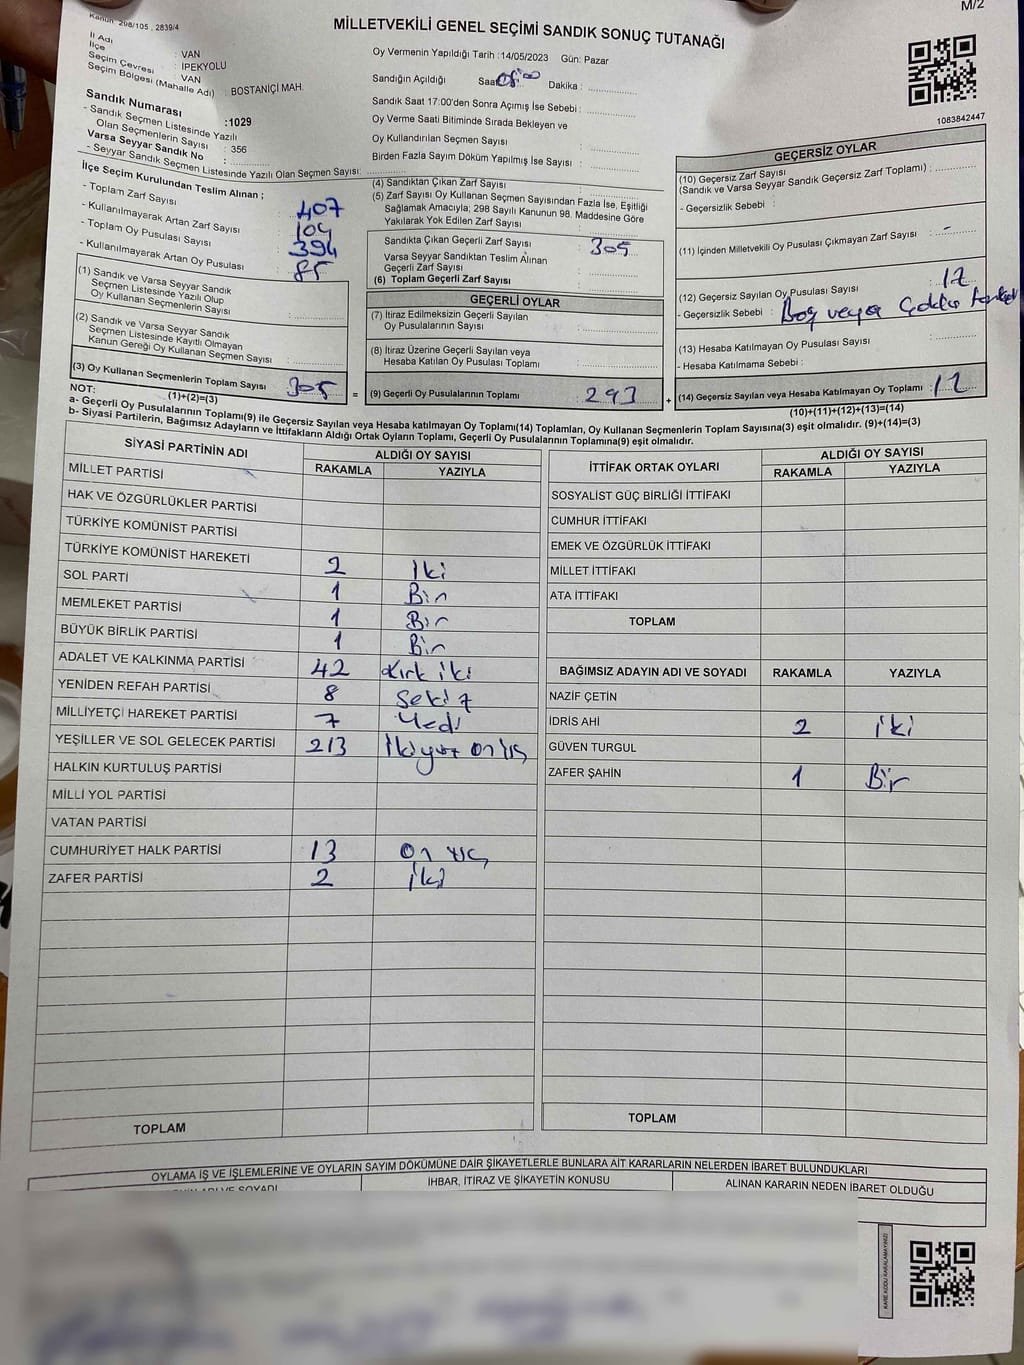 Kanun: 298/105 , 2839/4
M/2
MİLLETVEKİLİ GENEL SEÇİMİ SANDIK SONUÇ TUTANAĞI
İl Adı : VAN
İlçe : İPEKYOLU
Seçim Çevresi : VAN
Seçim Bölgesi (Mahalle Adı) : BOSTANİÇİ MAH.
Sandık Numarası :1029
- Sandık Seçmen Listesinde Yazılı
Olan Seçmenlerin Sayısı : 356
Varsa Seyyar Sandık No :
- Seyyar Sandık Seçmen Listesinde Yazılı Olan Seçmen Sayısı:
Oy Vermenin Yapıldığı Tarih :14/05/2023 Gün: Pazar
Sandığın Açıldığı Saat: Dakika :
Sandık Saat 17:00'den Sonra Açımış İse Sebebi :
Oy Verme Saati Bitiminde Sırada Bekleyen ve
Oy Kullandırılan Seçmen Sayısı :
Birden Fazla Sayım Döküm Yapılmış İse Sayısı :
1083842447
İlçe Seçim Kurulundan Teslim Alınan ;
- Toplam Zarf Sayısı : 407
- Kullanılmayarak Artan Zarf Sayısı : 104
- Toplam Oy Pusulası Sayısı : 394
- Kullanılmayarak Artan Oy Pusulası : 85
(1) Sandık ve Varsa Seyyar Sandık
Seçmen Listesinde Yazılı Olup
Oy Kullanan Seçmenlerin Sayısı :
(2) Sandık ve Varsa Seyyar Sandık
Seçmen Listesinde Kayıtlı Olmayan
Kanun Gereği Oy Kullanan Seçmen Sayısı :
(3) Oy Kullanan Seçmenlerin Toplam Sayısı 305
(1)+(2)=(3)
(4) Sandıktan Çıkan Zarf Sayısı :
(5) Zarf Sayısı Oy Kullanan Seçmen Sayısından Fazla İse, Eşitliği
Sağlamak Amacıyla; 298 Sayılı Kanunun 98. Maddesine Göre
Yakılarak Yok Edilen Zarf Sayısı :
Sandıkta Çıkan Geçerli Zarf Sayısı : 305
Varsa Seyyar Sandıktan Teslim Alınan
Geçerli Zarf Sayısı :
(6) Toplam Geçerli Zarf Sayısı :
GEÇERLİ OYLAR
(7) İtiraz Edilmeksizin Geçerli Sayılan
Oy Pusulalarının Sayısı :
(8) İtiraz Üzerine Geçerli Sayılan veya
Hesaba Katılan Oy Pusulası Toplamı :
= (9) Geçerli Oy Pusulalarının Toplamı : 293 +
GEÇERSİZ OYLAR
(10) Geçersiz Zarf Sayısı
(Sandık ve Varsa Seyyar Sandık Geçersiz Zarf Toplamı) :
- Geçersizlik Sebebi :
(11) İçinden Milletvekili Oy Pusulası Çıkmayan Zarf Sayısı : -
(12) Geçersiz Sayılan Oy Pusulası Sayısı : 12
- Geçersizlik Sebebi : Boş veya
(13) Hesaba Katılmayan Oy Pusulası Sayısı :
- Hesaba Katılmama Sebebi :
(14) Geçersiz Sayılan veya Hesaba Katılmayan Oy Toplamı : 12
(10)+(11)+(12)+(13)=(14)
NOT:
a- Geçerli Oy Pusulalarının Toplamı(9) ile Geçersiz Sayılan veya Hesaba katılmayan Oy Toplamı(14) Toplamları, Oy Kullanan Seçmenlerin Toplam Sayısına(3) eşit olmalıdır. (9)+(14)=(3)
b- Siyasi Partilerin, Bağımsız Adayların ve İttifakların Aldığı Ortak Oyların Toplamı, Geçerli Oy Pusulalarının Toplamına(9) eşit olmalıdır.
SİYASİ PARTİNİN ADI ALDIĞI OY SAYISI
RAKAMLA YAZIYLA
MİLLET PARTİSİ
HAK VE ÖZGÜRLÜKLER PARTİSİ
TÜRKİYE KOMÜNİST PARTİSİ
TÜRKİYE KOMÜNİST HAREKETİ 2 iki
SOL PARTİ 1 Bir
MEMLEKET PARTİSİ 1 Bir
BÜYÜK BİRLİK PARTİSİ 1 Bir
ADALET VE KALKINMA PARTİSİ 42 kırk iki
YENİDEN REFAH PARTİSİ 8 Sekiz
MİLLİYETÇİ HAREKET PARTİSİ 7 Yedi
YEŞİLLER VE SOL GELECEK PARTİSİ 213 ikiyüz on üç
HALKIN KURTULUŞ PARTİSİ
MİLLİ YOL PARTİSİ
VATAN PARTİSİ
CUMHURİYET HALK PARTİSİ 13 on üç
ZAFER PARTİSİ 2 iki
TOPLAM
İTTİFAK ORTAK OYLARI ALDIĞI OY SAYISI
RAKAMLA YAZIYLA
SOSYALİST GÜÇ BİRLİĞİ İTTİFAKI
CUMHUR İTTİFAKI
EMEK VE ÖZGÜRLÜK İTTİFAKI
MİLLET İTTİFAKI
ATA İTTİFAKI
TOPLAM
BAĞIMSIZ ADAYIN ADI VE SOYADI RAKAMLA YAZIYLA
NAZİF ÇETİN
İDRİS AHİ 2 iki
GÜVEN TURGUL
ZAFER ŞAHİN 1 Bir
TOPLAM
OYLAMA İŞ VE İŞLEMLERİNE VE OYLARIN SAYIM DÖKÜMÜNE DAİR ŞİKAYETLERLE BUNLARA AİT KARARLARIN NELERDEN İBARET BULUNDUKLARI
SOYADI İHBAR, İTİRAZ VE ŞİKAYETİN KONUSU ALINAN KARARIN NEDEN İBARET OLDUĞU
KARE KODU KARALAMAYINIZ!